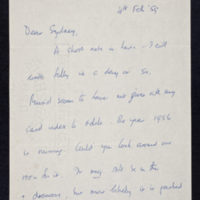 4th Feb '59
Dear Sydney,
A short note in haste - I will
write fully in a day or so.
Muriel seems to have me gone with my
card index to date. The year 1956
is missing. Could you look around and
now for it. It may still be in the
+ classroom, but more likely it is packed